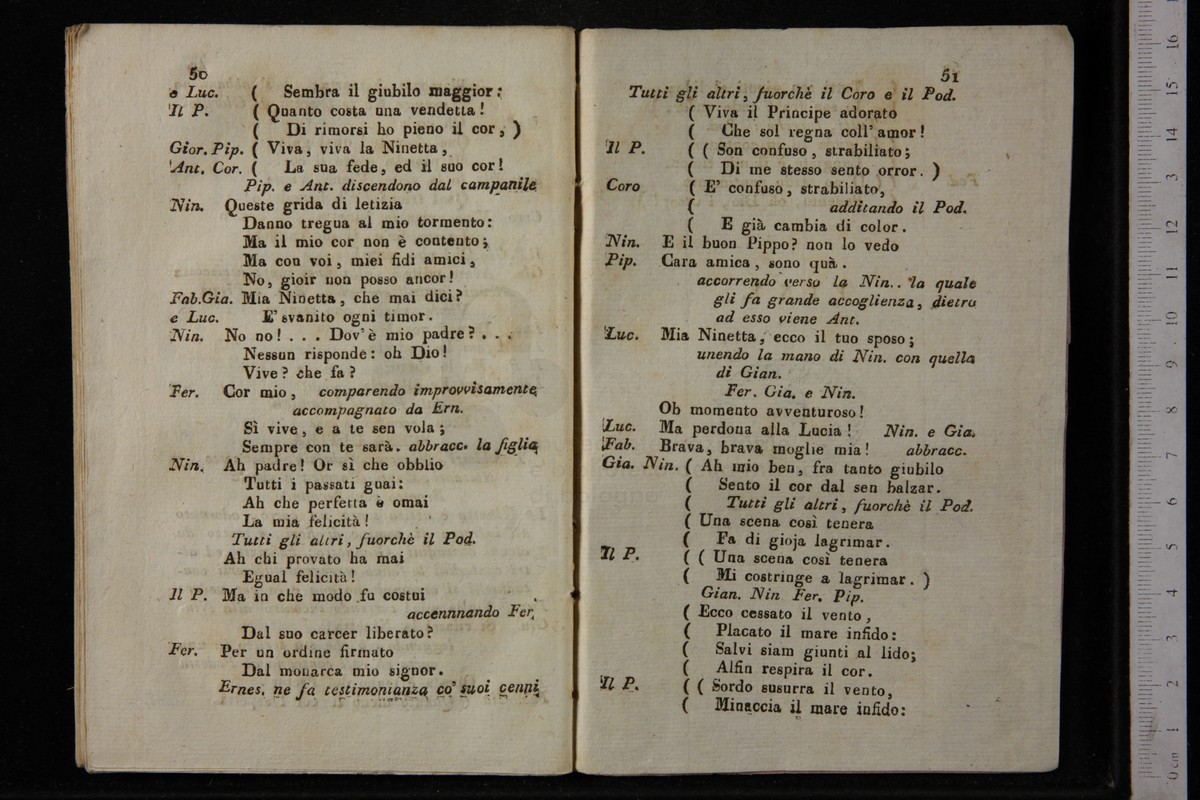 50
e Luc. ( Sembra il giubilo maggior;
Il P. ( Quanto costa una vendetta!
( Di rimorsi ho pieno il cor, )
Gior. Pip. ( Viva, viva la Ninetta,
Ant. Cor. ( La sua fede, ed il suo cor!
Pip. e Ant. discendono dal campanile
Nin. Queste grida di letizia
Danno tregua al mio tormento:
Ma il mio cor non è contento;
Ma con voi, miei fidi amici,
No, gioir non posso ancor!
Fab. Gia. Mia Ninetta, che mai dici?
e Luc. E' svanito ogni timor.
Nin. No no! . . . Dov'è mio padre? . . .
Nessun risponde: oh Dio!
Vive? che fa?
Fer. Cor mio, comparendo improvvisamente
accompagnato da Ern.
Sì vive, e a te sen vola;
Sempre con te sarà. abbracc. la figlia
Nin. Ah padre! Or sì che obblio
Tutti i passati guai:
Ah che perfetta è omai
La mia felicità!
Tutti gli altri, fuorchè il Pod.
Ah chi provato ha mai
Egual felicità!
Il P. Ma in che modo fu costui
accennnando Fer.
Dal suo carcer liberato?
Fer. Per un ordine firmato
Dal monarca mio signor.
Ernes. ne fa testimonianza co' suoi cenni
51
Tutti gli altri, fuorchè il Coro e il Pod.
( Viva il Principe adorato
( Che sol regna coll' amor!
Il P. ( ( Son confuso, strabiliato;
( Di me stesso sento orror. )
Coro ( E' confuso, strabiliato,
( additando il Pod.
( E già cambia di color.
Nin. E il buon Pippo? non lo vedo
Pip. Cara amica, sono quà.
accorrendo verso la Nin.. la quale
gli fa grande accoglienza, dietro
ad esso viene Ant.
Luc. Mia Ninetta, ecco il tuo sposo;
unendo la mano di Nin. con quella
di Gian.
Fer. Gia. e Nin.
Oh momento avventuroso!
Luc. Ma perdona alla Lucia! Nin. e Gia.
Fab. Brava, brava moglie mia! abbracc.
Gia. Nin. ( Ah mio ben, fra tanto giubilo
( Sento il cor dal sen balzar.
( Tutti gli altri, fuorchè il Pod.
( Una scena così tenera
( Fa di gioja lagrimar.
Il P. ( ( Una scena così tenera
( Mi costringe a lagrimar. )
Gian. Nin Fer. Pip.
( Ecco cessato il vento,
( Placato il mare infido:
( Salvi siam giunti al lido;
( Alfin respira il cor.
Il P. ( ( Sordo susurra il vento,
( Minaccia il mare infido:
0 cm 1 2 3 4 5 6 7 8 9 10 11 12 13 14 15 16